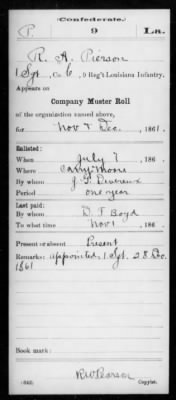 Confederate.
P. 9 La.
R. A. Pierson
1 Sgt, Co. C, 9 Reg't Louisiana Infantry.
Appears on
Company Muster Roll
of the organization named above,
for Nov & Dec, 1861.
Enlisted:
When July 7, 186 .
Where Camp Moore
By whom J. G. Devereux
Period one year
Last paid:
By whom D. F. Boyd
To what time Nov 1, 186 .
Present or absent Present
Remarks: appointed 1 Sgt. 28 Dec.
1861
Book mark:
(642)
Copyist.